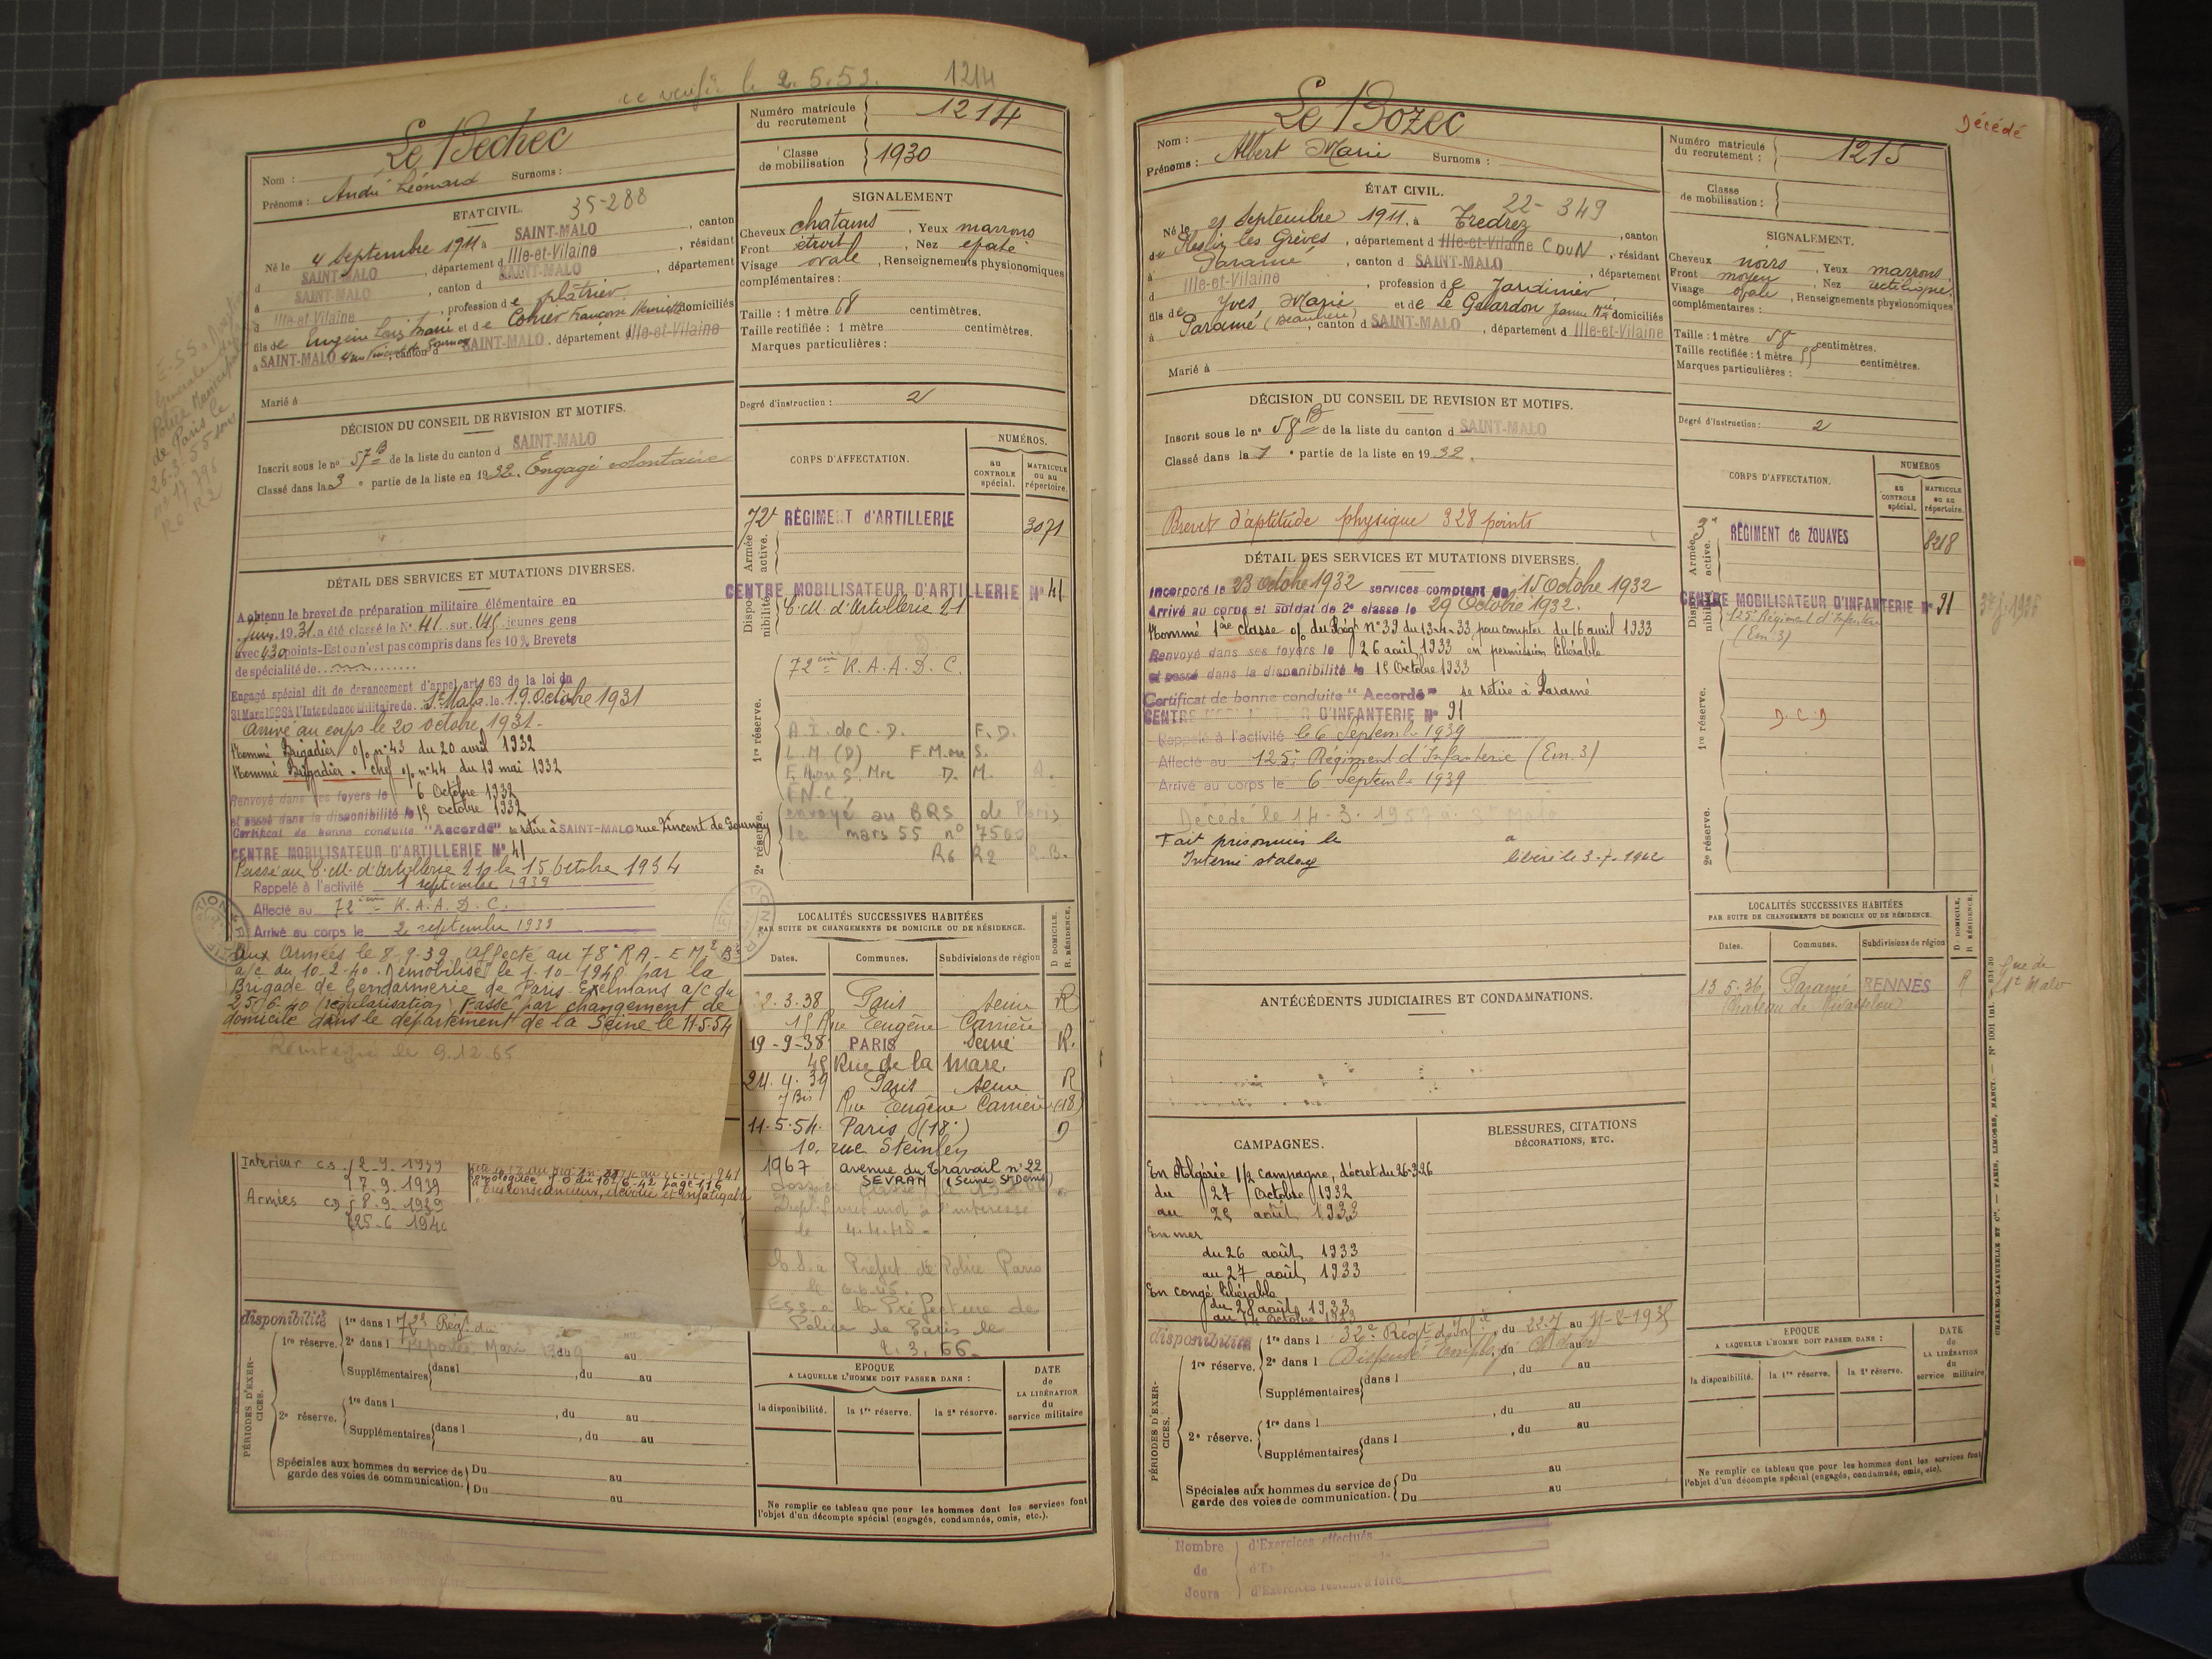 ce 2.5.52. 1214
Nom : Le Bechec
Prénoms : André Léonard Surnoms :
ETAT CIVIL. 35-288
Né le 4 Septembre 1911 à SAINT-MALO, canton
d SAINT-MALO, département d Ille-et-Vilaine, résidant
à SAINT-MALO, canton d SAINT-MALO, département
d Ille-et-Vilaine, profession de plâtrier
fils de Eugène Marie et de domiciliés
à SAINT-MALO, canton d SAINT-MALO, département d Ille-et-Vilaine
Marié à
DÉCISION DU CONSEIL DE REVISION ET MOTIFS.
Inscrit sous le n° 57 B de la liste du canton d SAINT-MALO
Classé dans la 3e partie de la liste en 1932. Engagé volontaire
de Paris le
26.3.55
R6 R2
DÉTAIL DES SERVICES ET MUTATIONS DIVERSES.
A obtenu le brevet de préparation militaire élémentaire en
juin 1931 a été classé le N° 41 sur 145 jeunes gens
avec 430 points - Est ou n'est pas compris dans les 10 % Brevets
de spécialité de
Engagé spécial dit de devancement d'appel art. 63 de la loi du
31 Mars 1928 à l'Intendance Militaire de St Malo le 19 Octobre 1931
Arrivé au corps le 20 octobre 1931 -
Nommé Brigadier o/ n° 43 du 20 avril 1932
Nommé Brigadier - chef o/ n° 44 du 19 mai 1932
Renvoyé dans ses foyers le 6 Octobre 1932
et passé dans la disponibilité le 15 octobre 1932
Certificat de bonne conduite "Accordé" se retire à SAINT-MALO rue Vincent de Gournay
CENTRE MOBILISATEUR D'ARTILLERIE N° 41
Passé au C.M. d'Artillerie 21 le 15 Octobre 1934
Rappelé à l'activité 1 septembre 1939
Affecté au 72ème R.A.A.D.C.
Arrivé au corps le 2 septembre 1939
Aux Armées le 8-9-39 Affecté au 78e RA - EM
a/c du 10-2-40. Démobilisé le 1-10-1940 par la
Brigade de Gendarmerie de Paris-Exelmans a/c du
25/6-40 (régularisation) Passé par changement de
domicile dans le département de la Seine le 11-5-54
le 9.12.65
Intérieur c.s. 2-9-1939
7-9-1939
Armées c.d. 8-9-1939
25-6 1940
consciencieux, dévoué et infatigable
disponibilité
PÉRIODES D'EXERCICES.
1re réserve. 1re dans l 72e Régt du
2e dans l du au
Supplémentaires dans l , du au
2e réserve. 1re dans l , du au
Supplémentaires dans l , du au
Spéciales aux hommes du service de garde des voies de communication. Du au
Du au
Numéro matricule du recrutement 1214
Classe de mobilisation 1930
SIGNALEMENT
Cheveux chatains, Yeux marrons
Front étroit, Nez épaté
Visage ovale, Renseignements physionomiques
complémentaires :
Taille : 1 mètre 68 centimètres.
Taille rectifiée : 1 mètre centimètres.
Marques particulières :
Degré d'instruction : 2
CORPS D'AFFECTATION.
NUMÉROS.
au CONTROLE spécial.
MATRICULE ou au répertoire.
Armée active.
72e RÉGIMENT d'ARTILLERIE 3071
Disponibilité
CENTRE MOBILISATEUR D'ARTILLERIE N° 41
C.M. d'Artillerie 21
1re réserve.
72ème R.A.A.D.C.
A.I. de C.D. F.D.
L.M. (D) F.M. ou S.
D. M.
F.N.C.
2e réserve.
envoyé au BRS de Paris
le mars 55 n° 7500
R6 R2
LOCALITÉS SUCCESSIVES HABITÉES
PAR SUITE DE CHANGEMENTS DE DOMICILE OU DE RÉSIDENCE.
Dates. Communes. Subdivisions de région D. DOMICILE. R. RÉSIDENCE.
2.3.38 Paris Seine R
15 Rue Eugène Carrière
19-9-38 PARIS Seine R.
45 Rue de la Mare.
24.4.39 Paris Seine R
7 Bis Rue Eugène Carrière (18)
11-5-54 Paris (18e) D
10, rue Steinlen
1967 avenue du Travail n° 22
SEVRAN (Seine St Denis)
à l'intéressé
le 4.4.45 -
Préfect de Police Paris
la Préfecture de
Police de Paris le
2.3.66 -
EPOQUE
A LAQUELLE L'HOMME DOIT PASSER DANS :
la disponibilité. la 1re réserve. la 2e réserve.
DATE de LA LIBÉRATION du service militaire
Ne remplir ce tableau que pour les hommes dont les services font
l'objet d'un décompte spécial (engagés, condamnés, omis, etc.).
Décédé
Nom : Le Bozec
Prénoms : Albert Marie Surnoms :
ÉTAT CIVIL. 22-349
Né le 21 Septembre 1911 à Tredrez, canton
de Plestin les Grèves, département d Ille-et-Vilaine CDuN, résidant
à Paramé, canton d SAINT-MALO, département
d Ille-et-Vilaine, profession de Jardinier
fils de Yves Marie et de Le Gouardon Jeanne Mie domiciliés
à Paramé, canton d SAINT-MALO, département d Ille-et-Vilaine
Marié à
DÉCISION DU CONSEIL DE REVISION ET MOTIFS.
Inscrit sous le n° 58 B de la liste du canton d SAINT-MALO
Classé dans la 1e partie de la liste en 1932.
Brevet d'aptitude physique 328 points
DÉTAIL DES SERVICES ET MUTATIONS DIVERSES.
Incorporé le 23 Octobre 1932 services comptant du 15 Octobre 1932
Arrivé au corps et soldat de 2e classe le 29 Octobre 1932.
Nommé 1ère classe o/ du Régt N° 39 du 13-4-33 pour compter du 16 avril 1933
Renvoyé dans ses foyers le 26 août 1933 en permission libérable
et passé dans la disponibilité le 15 Octobre 1933
Certificat de bonne conduite "Accordé" se retire à Paramé
CENTRE MOBILISATEUR D'INFANTERIE N° 91
Rappelé à l'activité le 6 Septembre 1939
Affecté au 125e Régiment d'Infanterie (Em. 3)
Arrivé au corps le 6 Septembre 1939
Décédé le 14-3-1957 à St Malo
Fait prisonnier le à
Interné stalag libéré le 3-7-1942
ANTÉCÉDENTS JUDICIAIRES ET CONDAMNATIONS.
CAMPAGNES.
En Algérie 1/2 campagne, décret du 26-3-26
du 27 Octobre 1932
au 25 août 1933
En mer
du 26 août 1933
au 27 août 1933
En congé libérable
du 28 août 1933
au 14 octobre 1933
BLESSURES, CITATIONS
DÉCORATIONS, ETC.
disponibilité
PÉRIODES D'EXERCICES.
1re réserve. 1re dans l 32e Régt d'Inf. du 22-7 au
2e dans l Dispensé du au
Supplémentaires dans l , du au
2e réserve. 1re dans l , du au
Supplémentaires dans l , du au
Spéciales aux hommes du service de garde des voies de communication. Du au
Du au
Nombre de Jours
d'Exercices effectués
d'Exercices restant à faire
Numéro matricule du recrutement : 1215
Classe de mobilisation :
SIGNALEMENT.
Cheveux noirs, Yeux marrons.
Front moyen, Nez rectiligne.
Visage ovale, Renseignements physionomiques
complémentaires :
Taille : 1 mètre 58 centimètres.
Taille rectifiée : 1 mètre 55 centimètres.
Marques particulières :
Degré d'instruction : 2
CORPS D'AFFECTATION.
NUMÉROS
au CONTROLE spécial.
MATRICULE ou au répertoire.
Armée active.
3e RÉGIMENT de ZOUAVES 8218
Disponibilité
CENTRE MOBILISATEUR D'INFANTERIE N° 91
125e Régiment d'Infanterie
(Em. 3)
1re réserve.
D.C.D
2e réserve.
LOCALITÉS SUCCESSIVES HABITÉES
PAR SUITE DE CHANGEMENTS DE DOMICILE OU DE RÉSIDENCE.
Dates. Communes. Subdivisions de région D. DOMICILE. R. RÉSIDENCE.
13 5.36 Paramé RENNES R
Château de
St Malo
EPOQUE
A LAQUELLE L'HOMME DOIT PASSER DANS :
la disponibilité. la 1re réserve. la 2e réserve.
DATE de LA LIBÉRATION du service militaire
Ne remplir ce tableau que pour les hommes dont les services font
l'objet d'un décompte spécial (engagés, condamnés, omis, etc).
CHARLES-LAVAUZELLE ET Cie. — PARIS, LIMOGES, NANCY. — N° 1001